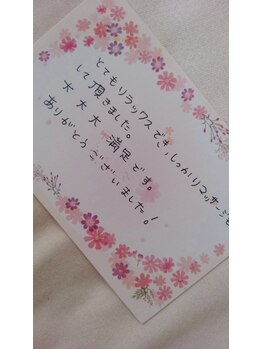 とてもリラックスでき、しっかりマッサージも
して頂きました。
大大大満足です。
ありがとうございました！